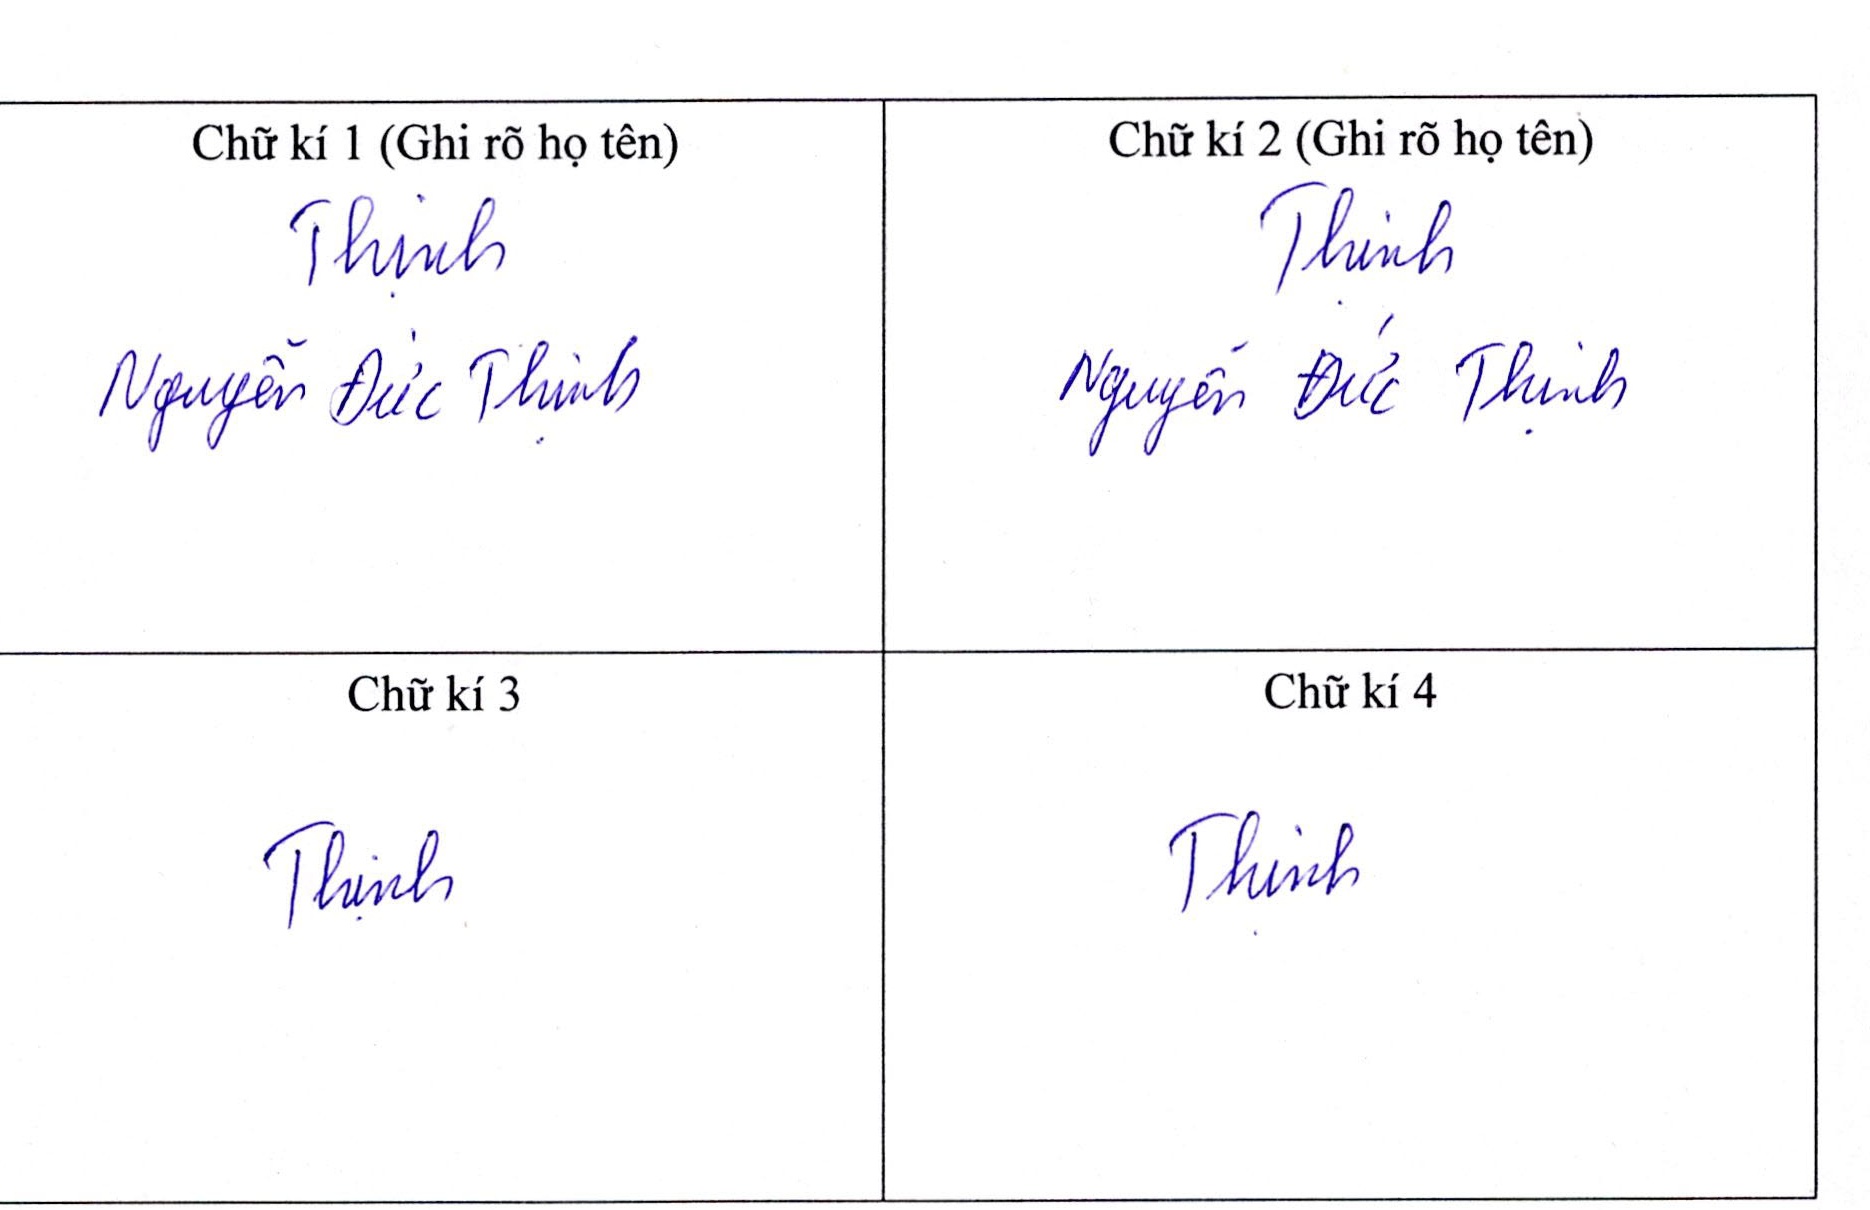 Chữ kí 1 (Ghi rõ họ tên)
Thịnh
Nguyễn Đức Thịnh
Chữ kí 2 (Ghi rõ họ tên)
Thịnh
Nguyễn Đức Thịnh
Chữ kí 3
Thịnh
Chữ kí 4
Thịnh